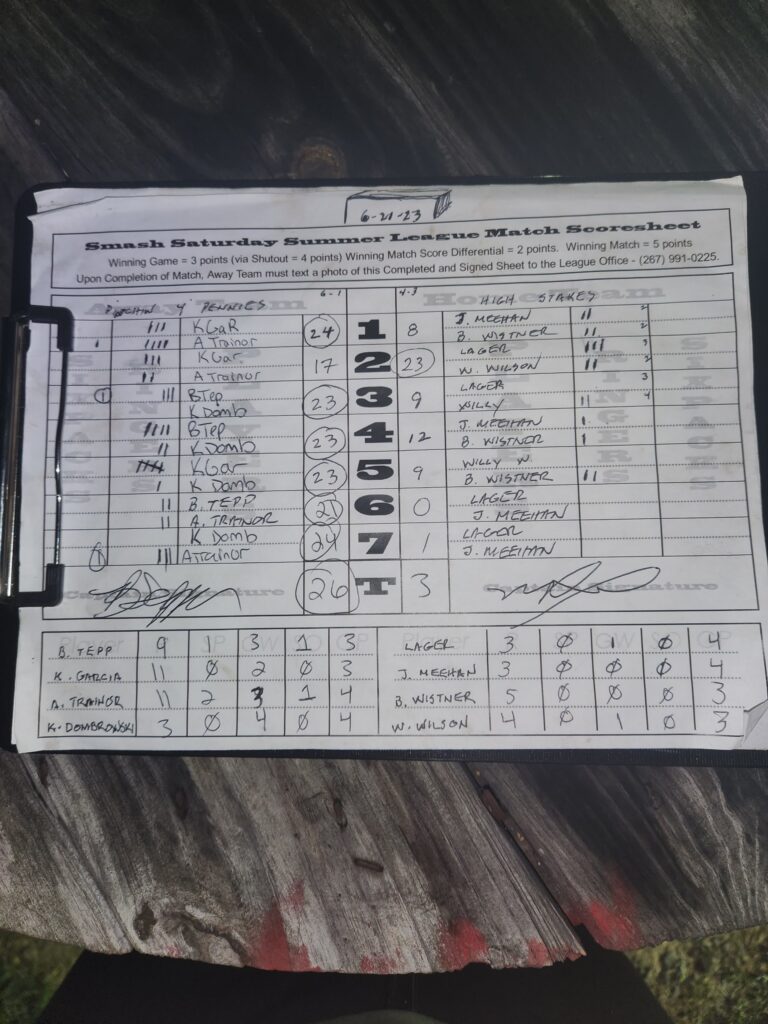 6-21-23
Smash Saturday Summer League Match Scoresheet
Winning Game = 3 points (via Shutout = 4 points) Winning Match Score Differential = 2 points. Winning Match = 5 points
Upon Completion of Match, Away Team must text a photo of this Completed and Signed Sheet to the League Office - (267) 991-0225.
PENNIES 6-1 4-3 HIGH STAKES
K GaR 24 1 8 J. MEEHAN 2
A Trainor B. WISTNER 2
K Gar 17 2 23 LAGER 3
A Trainor W. WILSON 2
1 BTep 23 3 9 LAGER 3
K Domb WILLY 4
BTep 23 4 12 J. MEEHAN
K Domb B. WISTNER
K Gar 23 5 9 WILLY W
K Domb B. WISTNER
B. TEPP 21 6 0 LAGER
A. TRAINOR J. MEEHAN
K Domb 24 7 1 LAGER
1 ATrainor J. MEEHAN
26 T 3
Signature Signature
B. TEPP 9 1 3 1 3 LAGER 3 Ø 1 Ø 4
K. GARCIA 11 Ø 2 Ø 3 J. MEEHAN 3 Ø Ø Ø 4
A. TRAINOR 11 2 3 1 4 B. WISTNER 5 Ø Ø Ø 3
K. DOMBROWSKI 3 Ø 4 Ø 4 W. WILSON 4 Ø 1 Ø 3